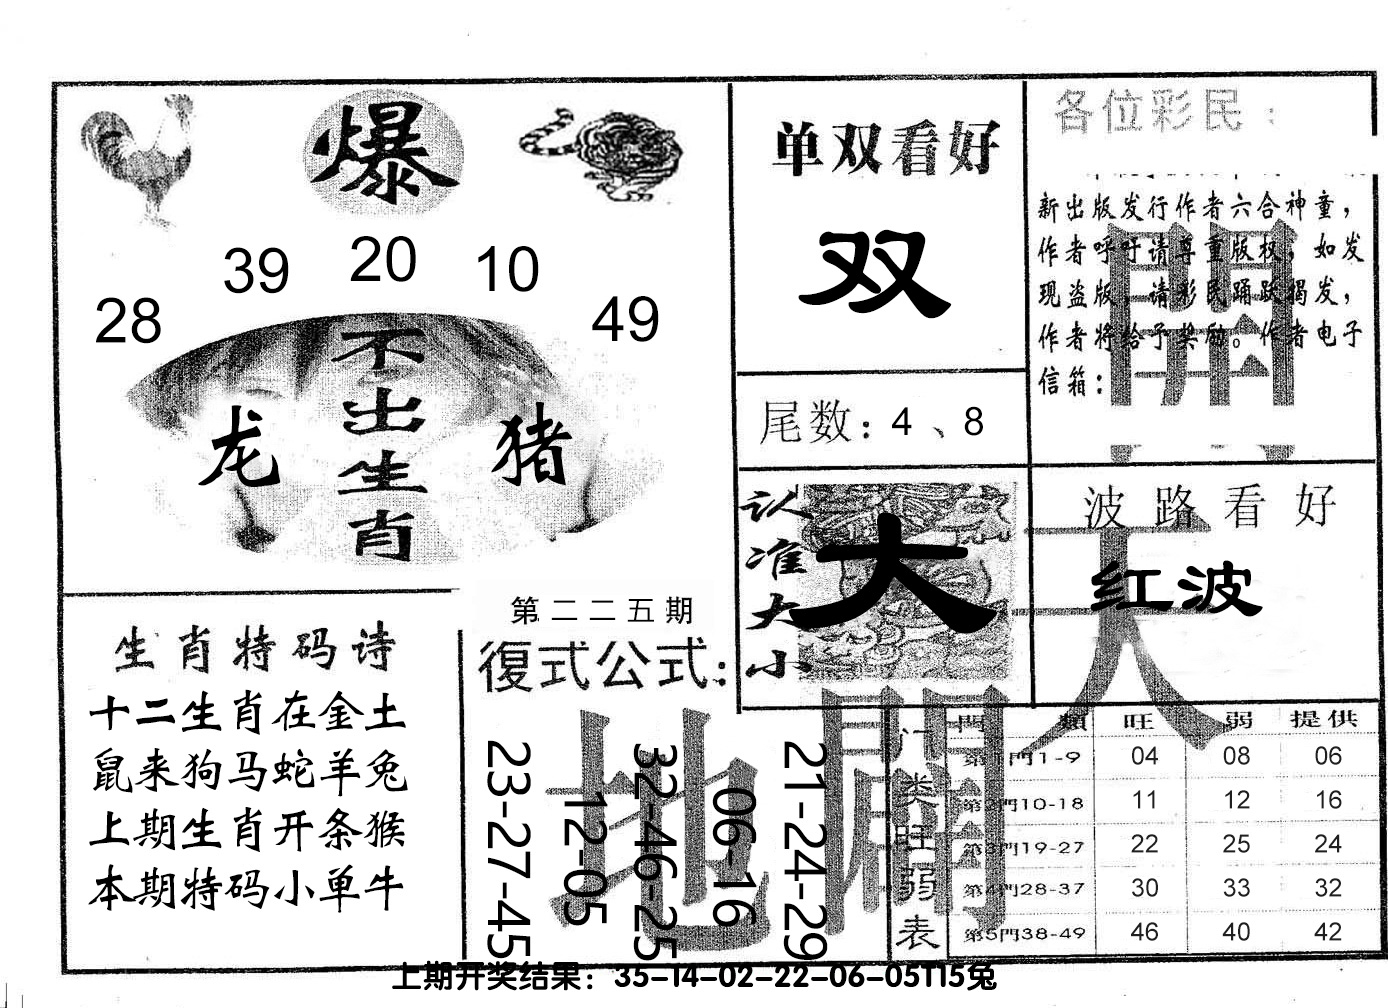 爆
28 39 20 10 49
不出生肖
龙 猪
单双看好
双
尾数：4、8
各位彩民：
新出版发行作者六合神童，
作者呼吁请尊重版权，如发
现盗版，请彩民踊跃揭发，
作者将给予奖励。作者电子
信箱：
開
认准大小
大
波路看好
红波
天
生肖特码诗
十二生肖在金土
鼠来狗马蛇羊兔
上期生肖开条猴
本期特码小单牛
第二二五期
復式公式：
23-27-45
12-05
32-46-25
06-16
21-24-29
地
門类旺弱表
門類 旺 弱 提供
第1門1-9 04 08 06
第2門10-18 11 12 16
第3門19-27 22 25 24
第4門28-37 30 33 32
第5門38-49 46 40 42
上期开奖结果：35-14-02-22-06-05T15兔